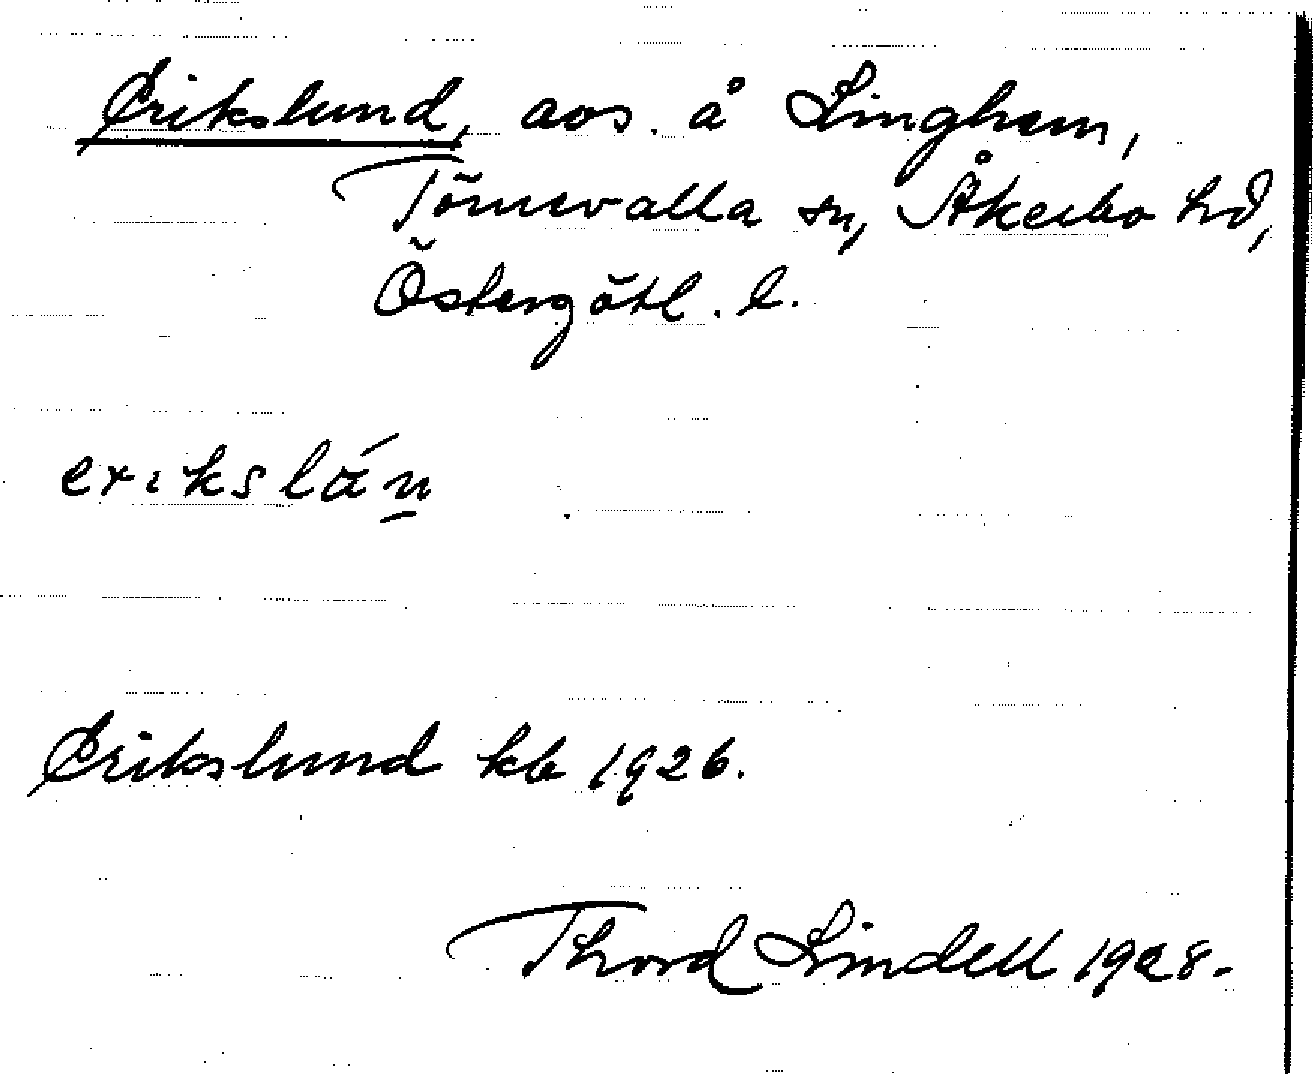 Erikslund, aos. å Linghem,
Törnevalla sn, Åkerbo hd,
Östergötl. l.
erikslán
Erikslund kb 1926.
Thord Lindell 1928.